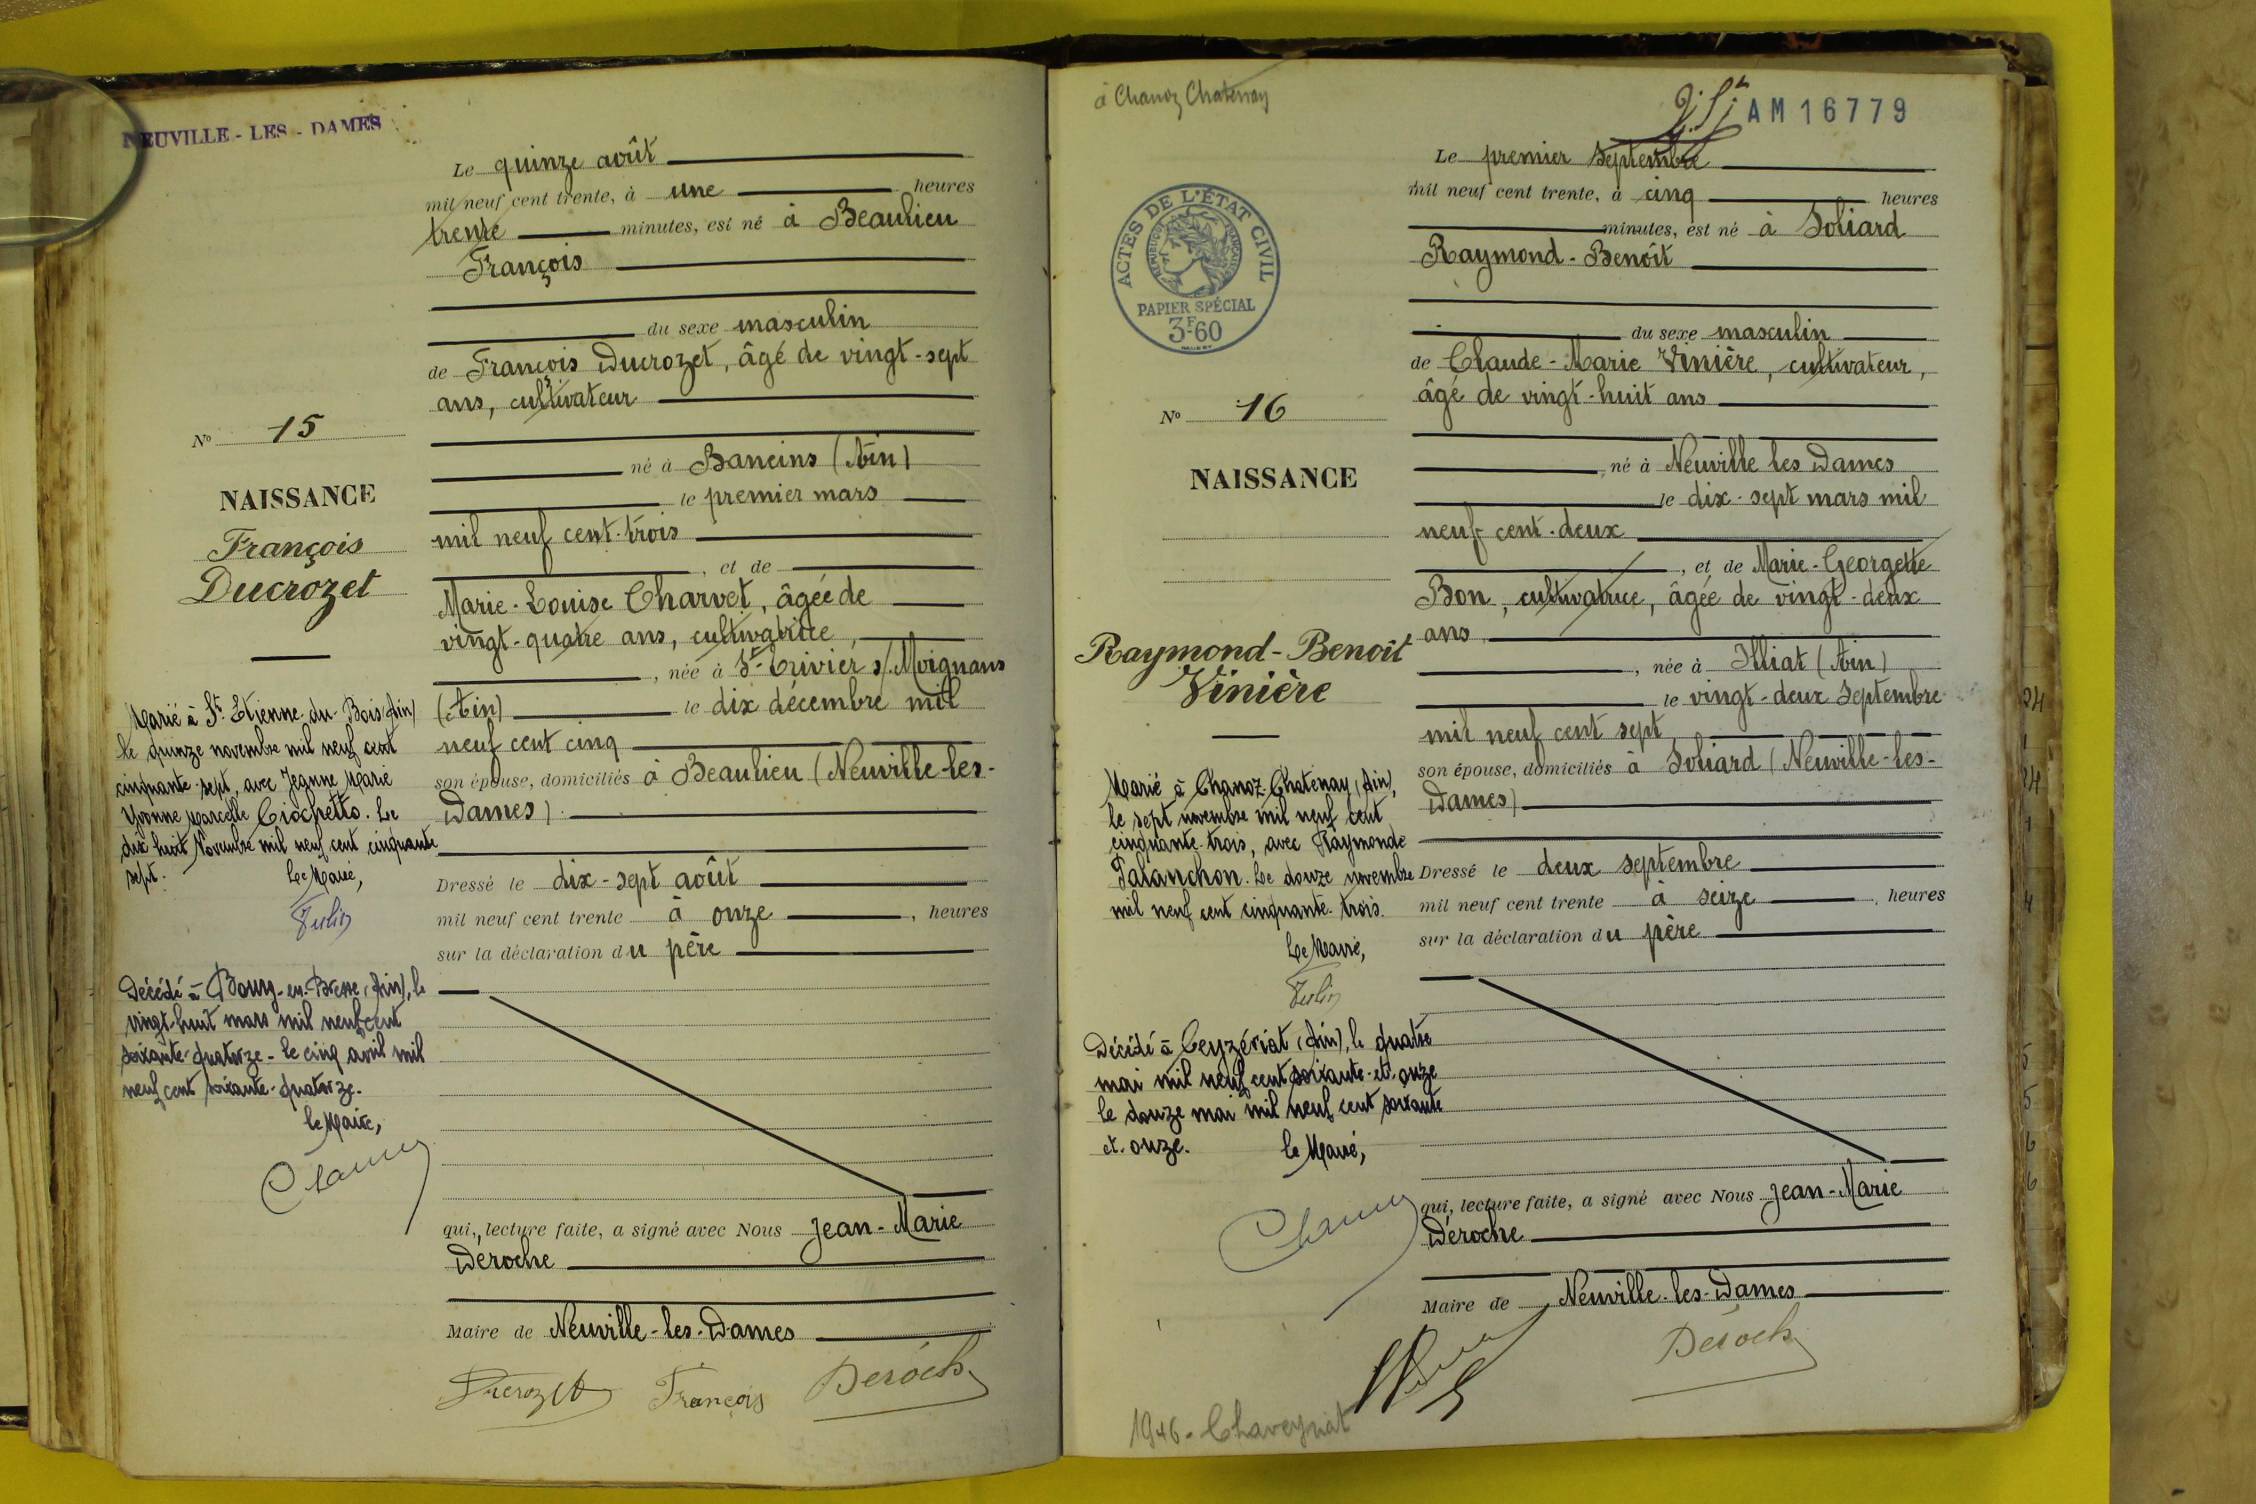 NEUVILLE - LES - DAMES
Le quinze août
mil neuf cent trente, à une heures
trente minutes, est né à Beaulieu
François
du sexe masculin
de François Ducrozet, âgé de vingt-sept
ans, cultivateur
né à Baneins (Ain)
le premier mars
mil neuf cent trois
, et de
Marie-Louise Charvet, âgée de
vingt-quatre ans, cultivatrice,
, née à St-Trivier s/Moignans
(Ain) le dix décembre mil
neuf cent cinq
son épouse, domiciliés à Beaulieu (Neuville-les-
Dames).
Dressé le dix-sept août
mil neuf cent trente à onze, heures
sur la déclaration du père
qui, lecture faite, a signé avec Nous Jean-Marie
Déroche
Maire de Neuville-les-Dames
Ducrozet François Déroche
No 15
NAISSANCE
François
Ducrozet
Marié à St Etienne-du-Bois (Ain)
le quinze novembre mil neuf cent
cinquante-sept, avec Jeanne Marie
Yvonne Marcelle Ciochetto. Le
dix huit Novembre mil neuf cent cinquante
sept.
Le Maire,
Décédé à Bourg-en-Bresse (Ain), le
vingt-huit mars mil neuf cent
soixante-quatorze - le cinq avril mil
neuf cent soixante-quatorze.
le Maire,
à Chanoz Chatenay
AM 16779
Le premier septembre
mil neuf cent trente, à cinq heures
minutes, est né à Soliard
Raymond-Benoît
du sexe masculin
de Claude-Marie Vinière, cultivateur,
âgé de vingt-huit ans
, né à Neuville les Dames
le dix-sept mars mil
neuf cent-deux
, et de Marie-Georgette
Bon, cultivatrice, âgée de vingt-deux
ans
, née à Illiat (Ain)
le vingt-deux septembre
mil neuf cent sept
son épouse, domiciliés à Soliard (Neuville-les-
Dames)
Dressé le deux septembre
mil neuf cent trente à seize, heures
sur la déclaration du père
qui, lecture faite, a signé avec Nous Jean-Marie
Déroche
Maire de Neuville-les-Dames
Déroche
ACTES DE L'ÉTAT CIVIL
RÉPUBLIQUE FRANÇAISE
PAPIER SPÉCIAL
3F60
No 16
NAISSANCE
Raymond-Benoît
Vinière
Marié à Chanoz-Chatenay (Ain),
le sept novembre mil neuf cent
cinquante-trois, avec Raymonde
Palanchon. Le douze novembre
mil neuf cent cinquante-trois.
Le Maire,
Décédé à Ceyzériat (Ain), le quatre
mai mil neuf cent soixante-et-onze
le douze mai mil neuf cent soixante
et-onze.
le Maire,
1946 - Chaveyriat